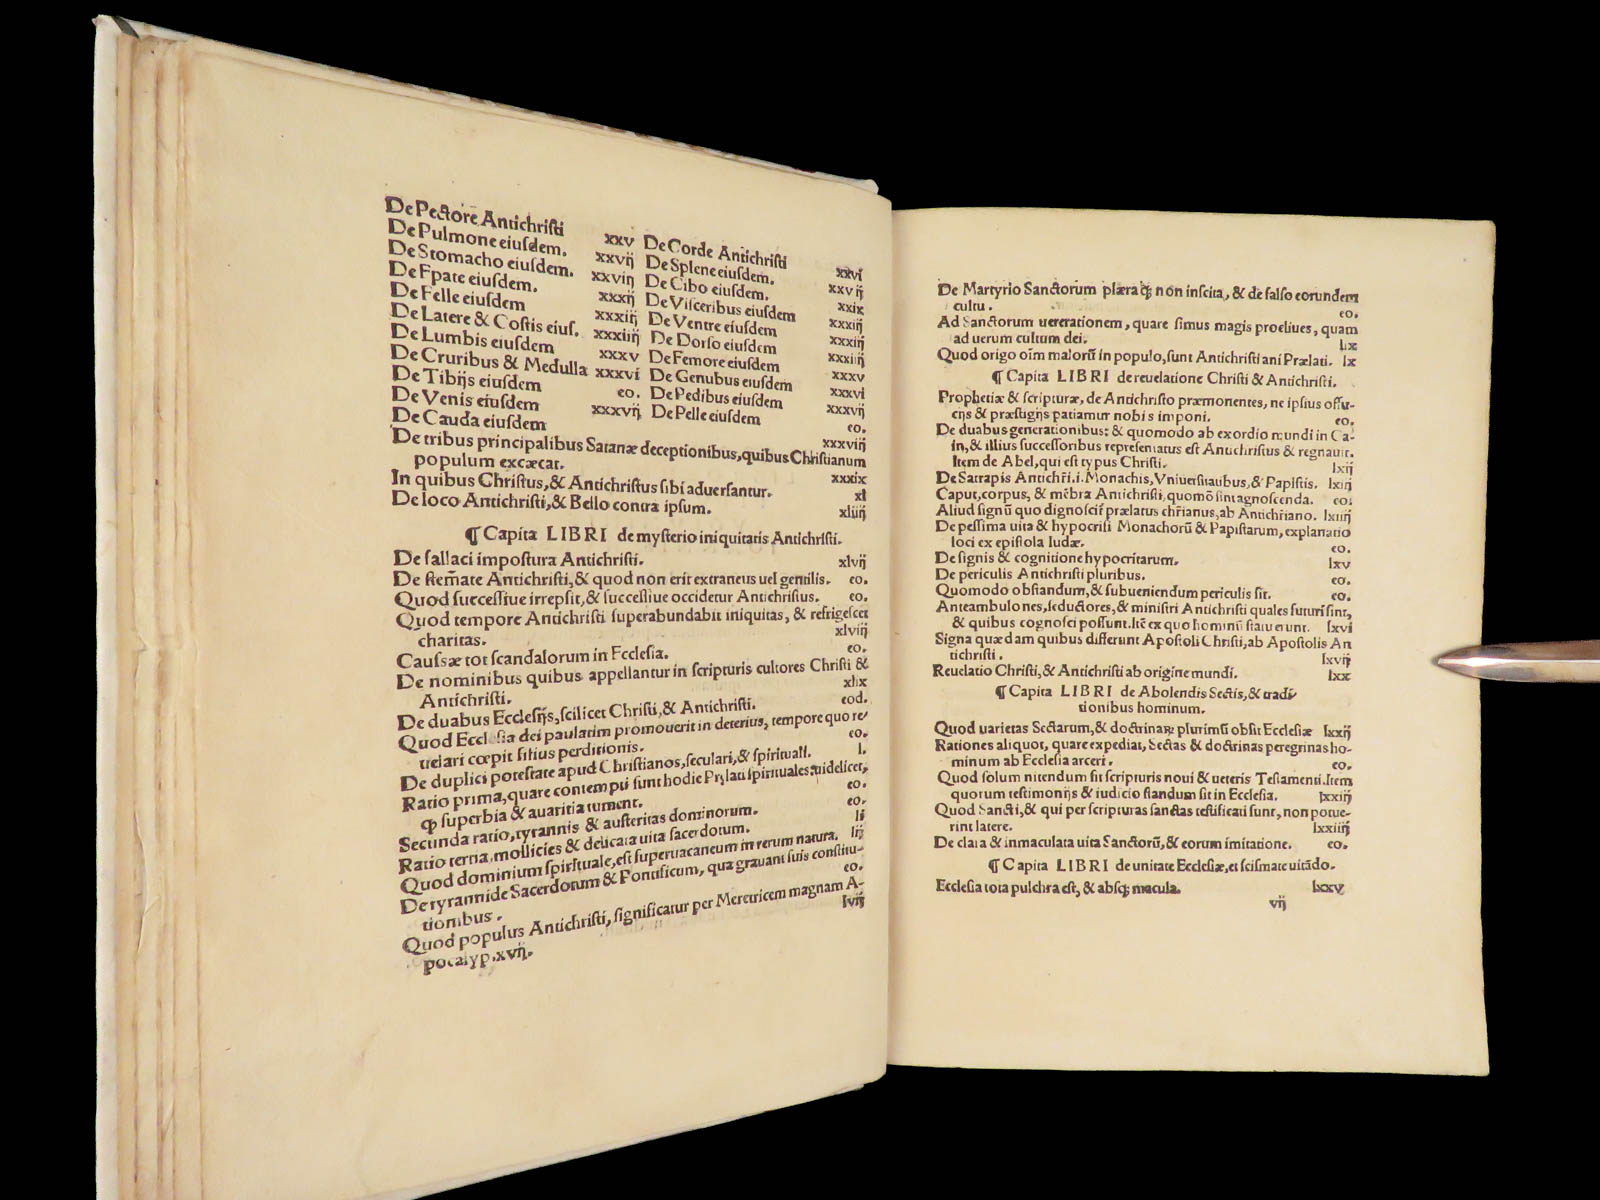 De Pectore Antichristi xxv De Corde Antichristi xxvi
De Pulmone eiusdem. xxvij De Splene eiusdem. xxvij
De Stomacho eiusdem. xxviij De Cibo eiusdem. xxix
De Epate eiusdem. xxxij De Visceribus eiusdem xxxij
De Felle eiusdem xxxiij De Ventre eiusdem xxxiij
De Latere & Costis eius. xxxiiij De Dorso eiusdem xxxiiij
De Lumbis eiusdem xxxv De Femore eiusdem xxxv
De Cruribus & Medulla xxxvi De Genubus eiusdem xxxvi
De Tibijs eiusdem eo. De Pedibus eiusdem xxxvij
De Venis eiusdem xxxvij De Pelle eiusdem eo.
De Cauda eiusdem xxxviij
De tribus principalibus Satanæ deceptionibus, quibus Christianum
populum excæcat. xxxix
In quibus Christus, & Antichristus sibi aduersantur. xl
De loco Antichristi, & Bello contra ipsum. xliij
¶ Capita LIBRI de mysterio iniquitatis Antichristi.
De fallaci impostura Antichristi. xlvij
De stem̃ate Antichristi, & quod non erit extraneus uel gentilis. eo.
Quod successiue irrepsit, & successiue occidetur Antichristus. eo.
Quod tempore Antichristi superabundabit iniquitas, & refrigescet
charitas. xlviij
Caussæ tot scandalorum in Ecclesia. eo.
De nominibus quibus appellantur in scripturis cultores Christi &
Antichristi. xlix
De duabus Ecclesijs, scilicet Christi, & Antichristi. eod.
Quod Ecclesia dei paulatim promouerit in deterius, tempore quo re-
uelari cœpit filius perditionis. eo.
De duplici potestate apud Christianos, seculari, & spirituali. l.
Ratio prima, quare contempti sunt hodie Prælati spirituales: uidelicet,
ꝙ superbia & auaritia tument. eo.
Secunda ratio, tyrannis & austeritas dominorum. eo.
Ratio tertia, mollicies & delicata uita sacerdotum. li
Quod dominium spirituale, est superuacaneum in rerum natura. lij
De tyrannide Sacerdotum & Pontificum, qua grauant suis constitu-
tionibus. eo.
Quod populus Antichristi, significatur per Meretricem magnam A-
pocalyp. xvij. lvij
De Martyrio Sanctorum plæraq; non inscita, & de falso eorundem
cultu. eo.
Ad Sanctorum uererationem, quare simus magis procliues, quam
ad uerum cultum dei. lix
Quod origo oim̄ maloru͂ in populo, sunt Antichristiani Prælati. lx
¶ Capita LIBRI de reuelatione Christi & Antichristi.
Prophetiæ & scripturæ, de Antichristo præmonentes, ne ipsius offu-
cijs & præstigijs patiamur nobis imponi. eo.
De duabus generationibus: & quomodo ab exordio mundi in Ca-
in, & illius successoribus repræsentatus est Antichristus & regnauit.
Item de Abel, qui est typus Christi. lxij
De Satrapis Antichr̃i. i. Monachis, Vniuersitatibus, & Papistis. lxiij
Caput, corpus, & mẽbra Antichristi, quomõ sint agnoscenda. eo.
Aliud signũ quo dignoscit̃ prælatus chr̃ianus, ab Antichr̃iano. lxiiij
De pessima uita & hypocrisi Monachorũ & Papistarum, explanatio
loci ex epistola Iudæ. eo.
De signis & cognitione hypocritarum. lxv
De periculis Antichristi pluribus. eo.
Quomodo obstandum, & subueniendum periculis sit. eo.
Anteambulones, seductores, & ministri Antichristi quales futuri sint,
& quibus cognosci possunt. Itẽ ex quo hominũ statu erunt. lxvi
Signa quædam quibus differunt Apostoli Christi, ab Apostolis An
tichristi. lxvij
Reuelatio Christi, & Antichristi ab origine mundi. lxx
¶ Capita LIBRI de Abolendis Sectis, & tradi-
tionibus hominum.
Quod uarietas Sectarum, & doctrinaꝝ plurimũ obsit Ecclesiæ lxxij
Rationes aliquot, quare expediat, Sectas & doctrinas peregrinas ho-
minum ab Ecclesia arceri. eo.
Quod solum nitendum sit scripturis noui & ueteris Testamenti. Item
quorum testimonijs & iudicio standum sit in Ecclesia. lxxiij
Quod Sancti, & qui per scripturas sanctas testificati sunt, non potue-
rint latere. lxxiiij
De clara & inmaculata uita Sanctorũ, & eorum imitatione. eo.
¶ Capita LIBRI de unitate Ecclesiæ, et scismate uitãdo.
Ecclesia tota pulchra est, & absq; macula. lxxv
vij